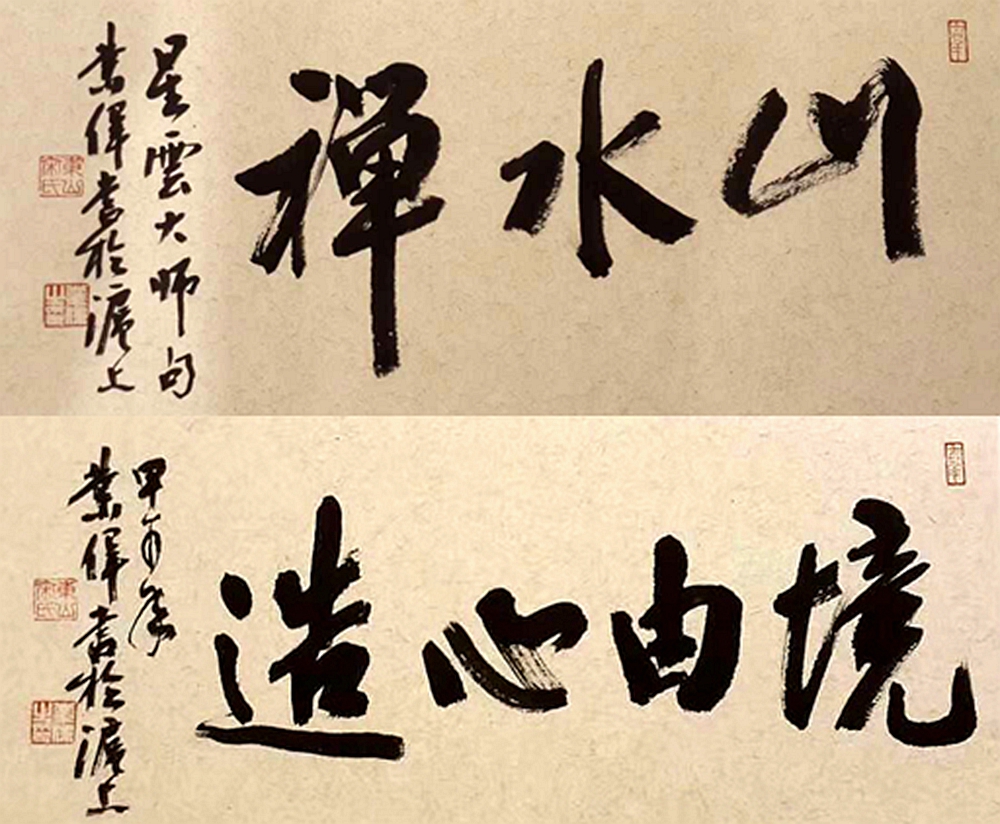 山水禪
星雲大師句
業偉書於滬上
境由心造
甲午
業偉書於滬上